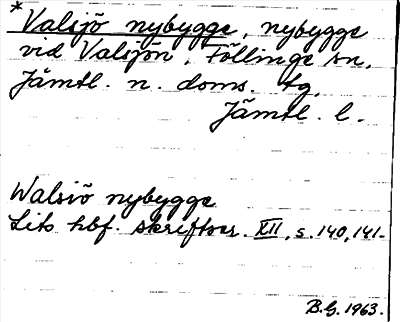 *Valsjö nybygge, nybygge
vid Valsjön, Föllinge sn,
Jämtl. n. doms. tg,
Jämtl. l.
Walsiö nybygge
Lits hbf. skriftser. XII, s. 140, 141.
B.G. 1963.